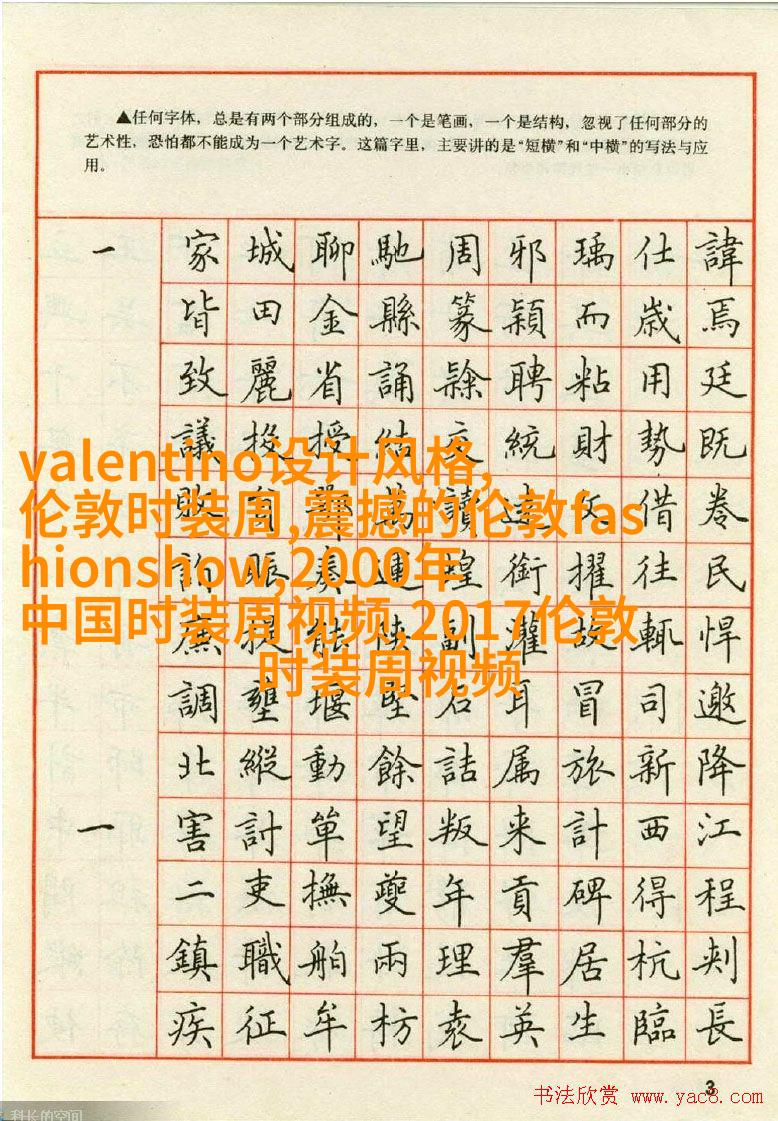 ▲任何字体，总是有两个部分组成的，一个是笔画，一个是结构，忽视了任何部分的
艺术性，恐怕都不能成为一个艺术字。这篇字里，主要讲的是“短横”和“中横”的写法与应
用。
一 家 城 聊 馳 周 邪 瑀 仕 諱
皆 田 金 縣 篆 潁 而 歲 焉
致 麗 省 誦 聘 粘 用 廷
議 投 授 結 交 統 財 勢 既
valentino设计风格,
敗 讀 逮 文 借 卷
伦敦时装周,震撼的伦敦fas
賑 奏 連 煌 銜 擢 往 民
hionshow,2000年
中国时装周视频,2017伦敦
廉 提 能 陸 副 灌 故 輒 悍
时装周视频
調 壅 堰 堅 石 耳 冒 司 邀
北 縱 動 餘 詰 属 旅 新 降
一 害 討 單 望 叛 来 計 西 江
二 吏 撫 夔 年 貢 碑 得 程
鎮 職 舶 兩 理 羣 居 杭 刺
疾 征 牟 枋 袁 英 生 臨 長
3
书法欣赏 www.yac8.com
科长的空间